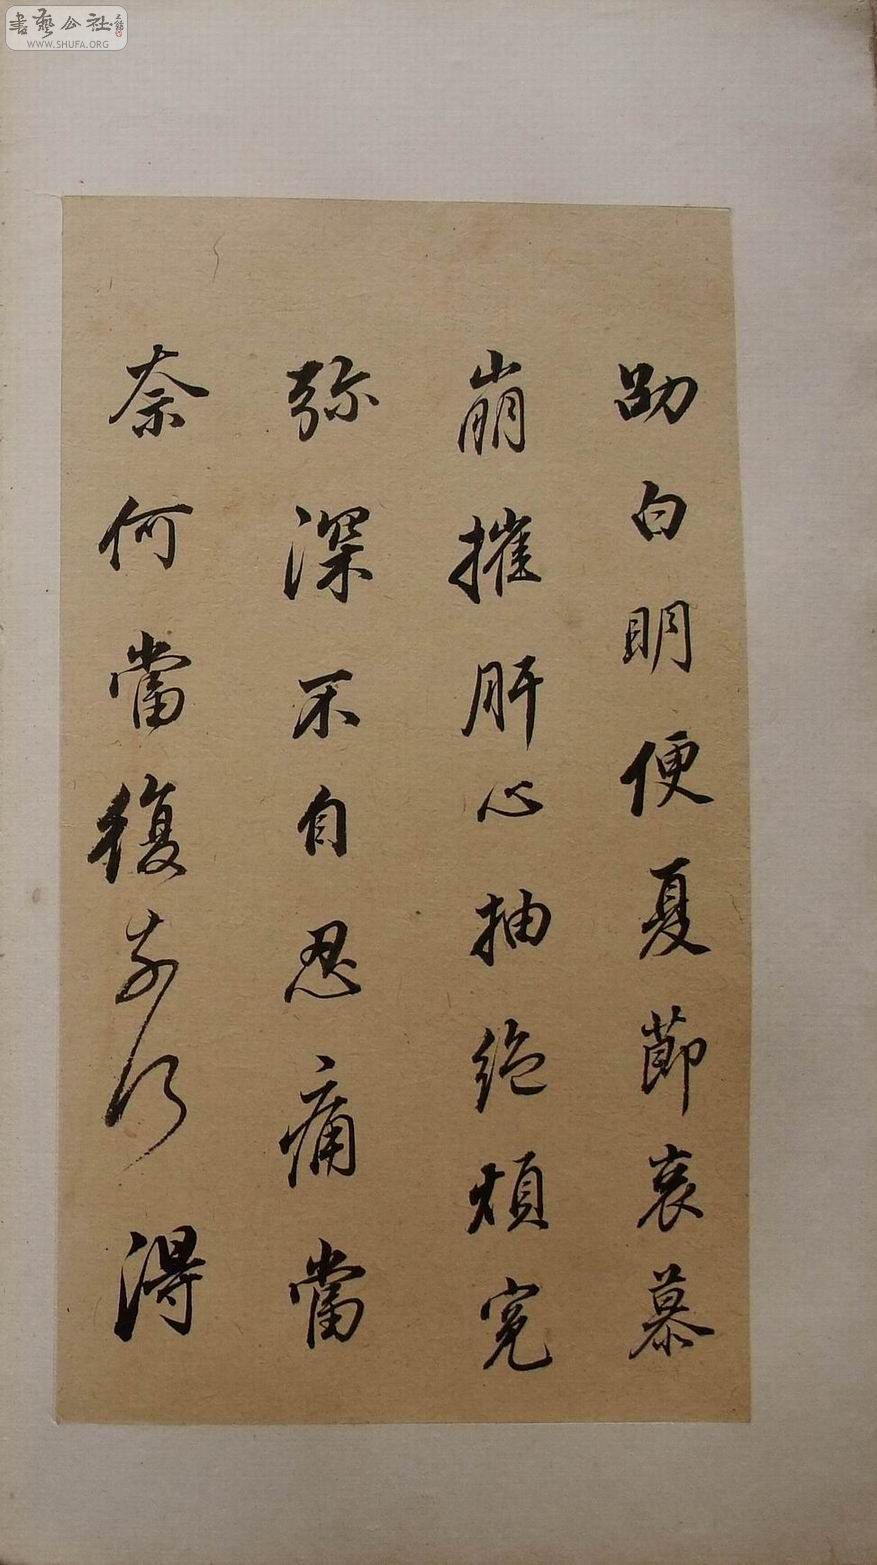 書藝公社
WWW.SHUFA.ORG
劭白明便夏節哀慕
崩摧肝心抽絕煩冤
弥深不自忍痛當
奈何當復奈何得